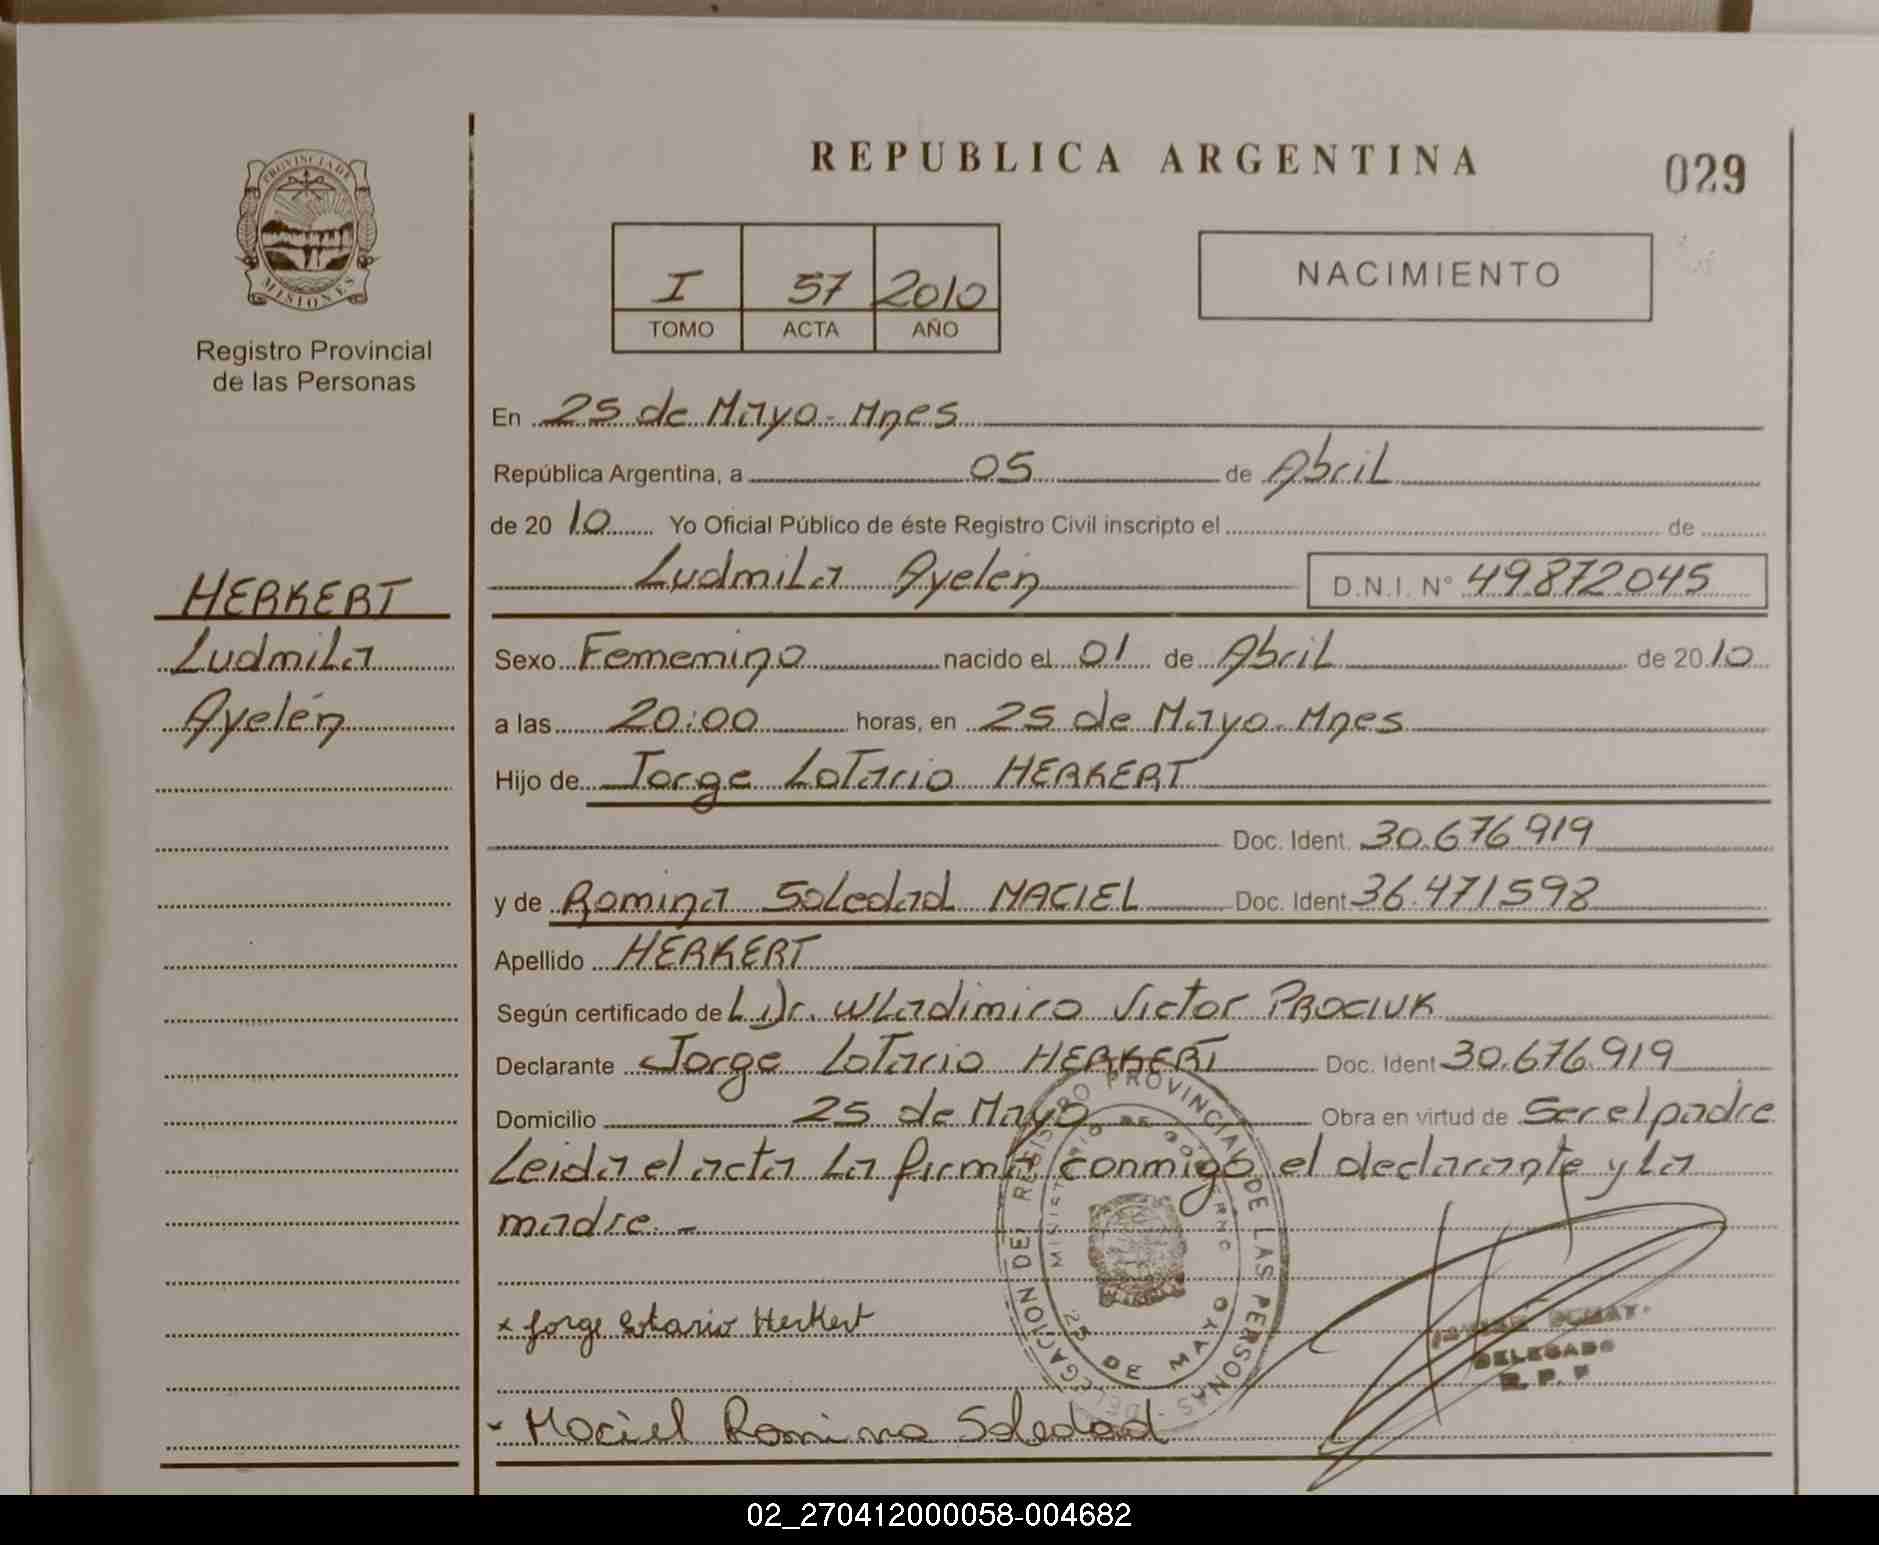 REPUBLICA ARGENTINA
029
PROVINCIA DE
MISIONES
Registro Provincial
de las Personas
I 57 2010
TOMO ACTA AÑO
NACIMIENTO
En 25 de Mayo - Mnes
República Argentina, a 05 de Abril
de 20 10 Yo Oficial Público de éste Registro Civil inscripto el de
Ludmila Ayelén D.N.I. N° 49872045
HERKERT
Ludmila
Ayelén
Sexo Femenino nacido el 01 de Abril de 20 10
a las 20:00 horas, en 25 de Mayo - Mnes
Hijo de Jorge Lotario HERKERT
Doc. Ident. 30.676.919
y de Romina Soledad MACIEL Doc. Ident 36.471598
Apellido HERKERT
Según certificado de L Dr. Wladimiro Victor PROCIUK
Declarante Jorge Lotario HERKERT Doc. Ident 30.676.919
Domicilio 25 de Mayo Obra en virtud de Ser el padre
Leida el acta la firma conmigo el declarante y la
madre. -
DELEGACION DEL REGISTRO PROVINCIAL DE LAS PERSONAS -
MINISTERIO DE GOBIERNO
25 DE MAYO
x Jorge Lotario Herkert
DELEGADO
R. P. P
- Maciel Romina Soledad
02_270412000058-004682